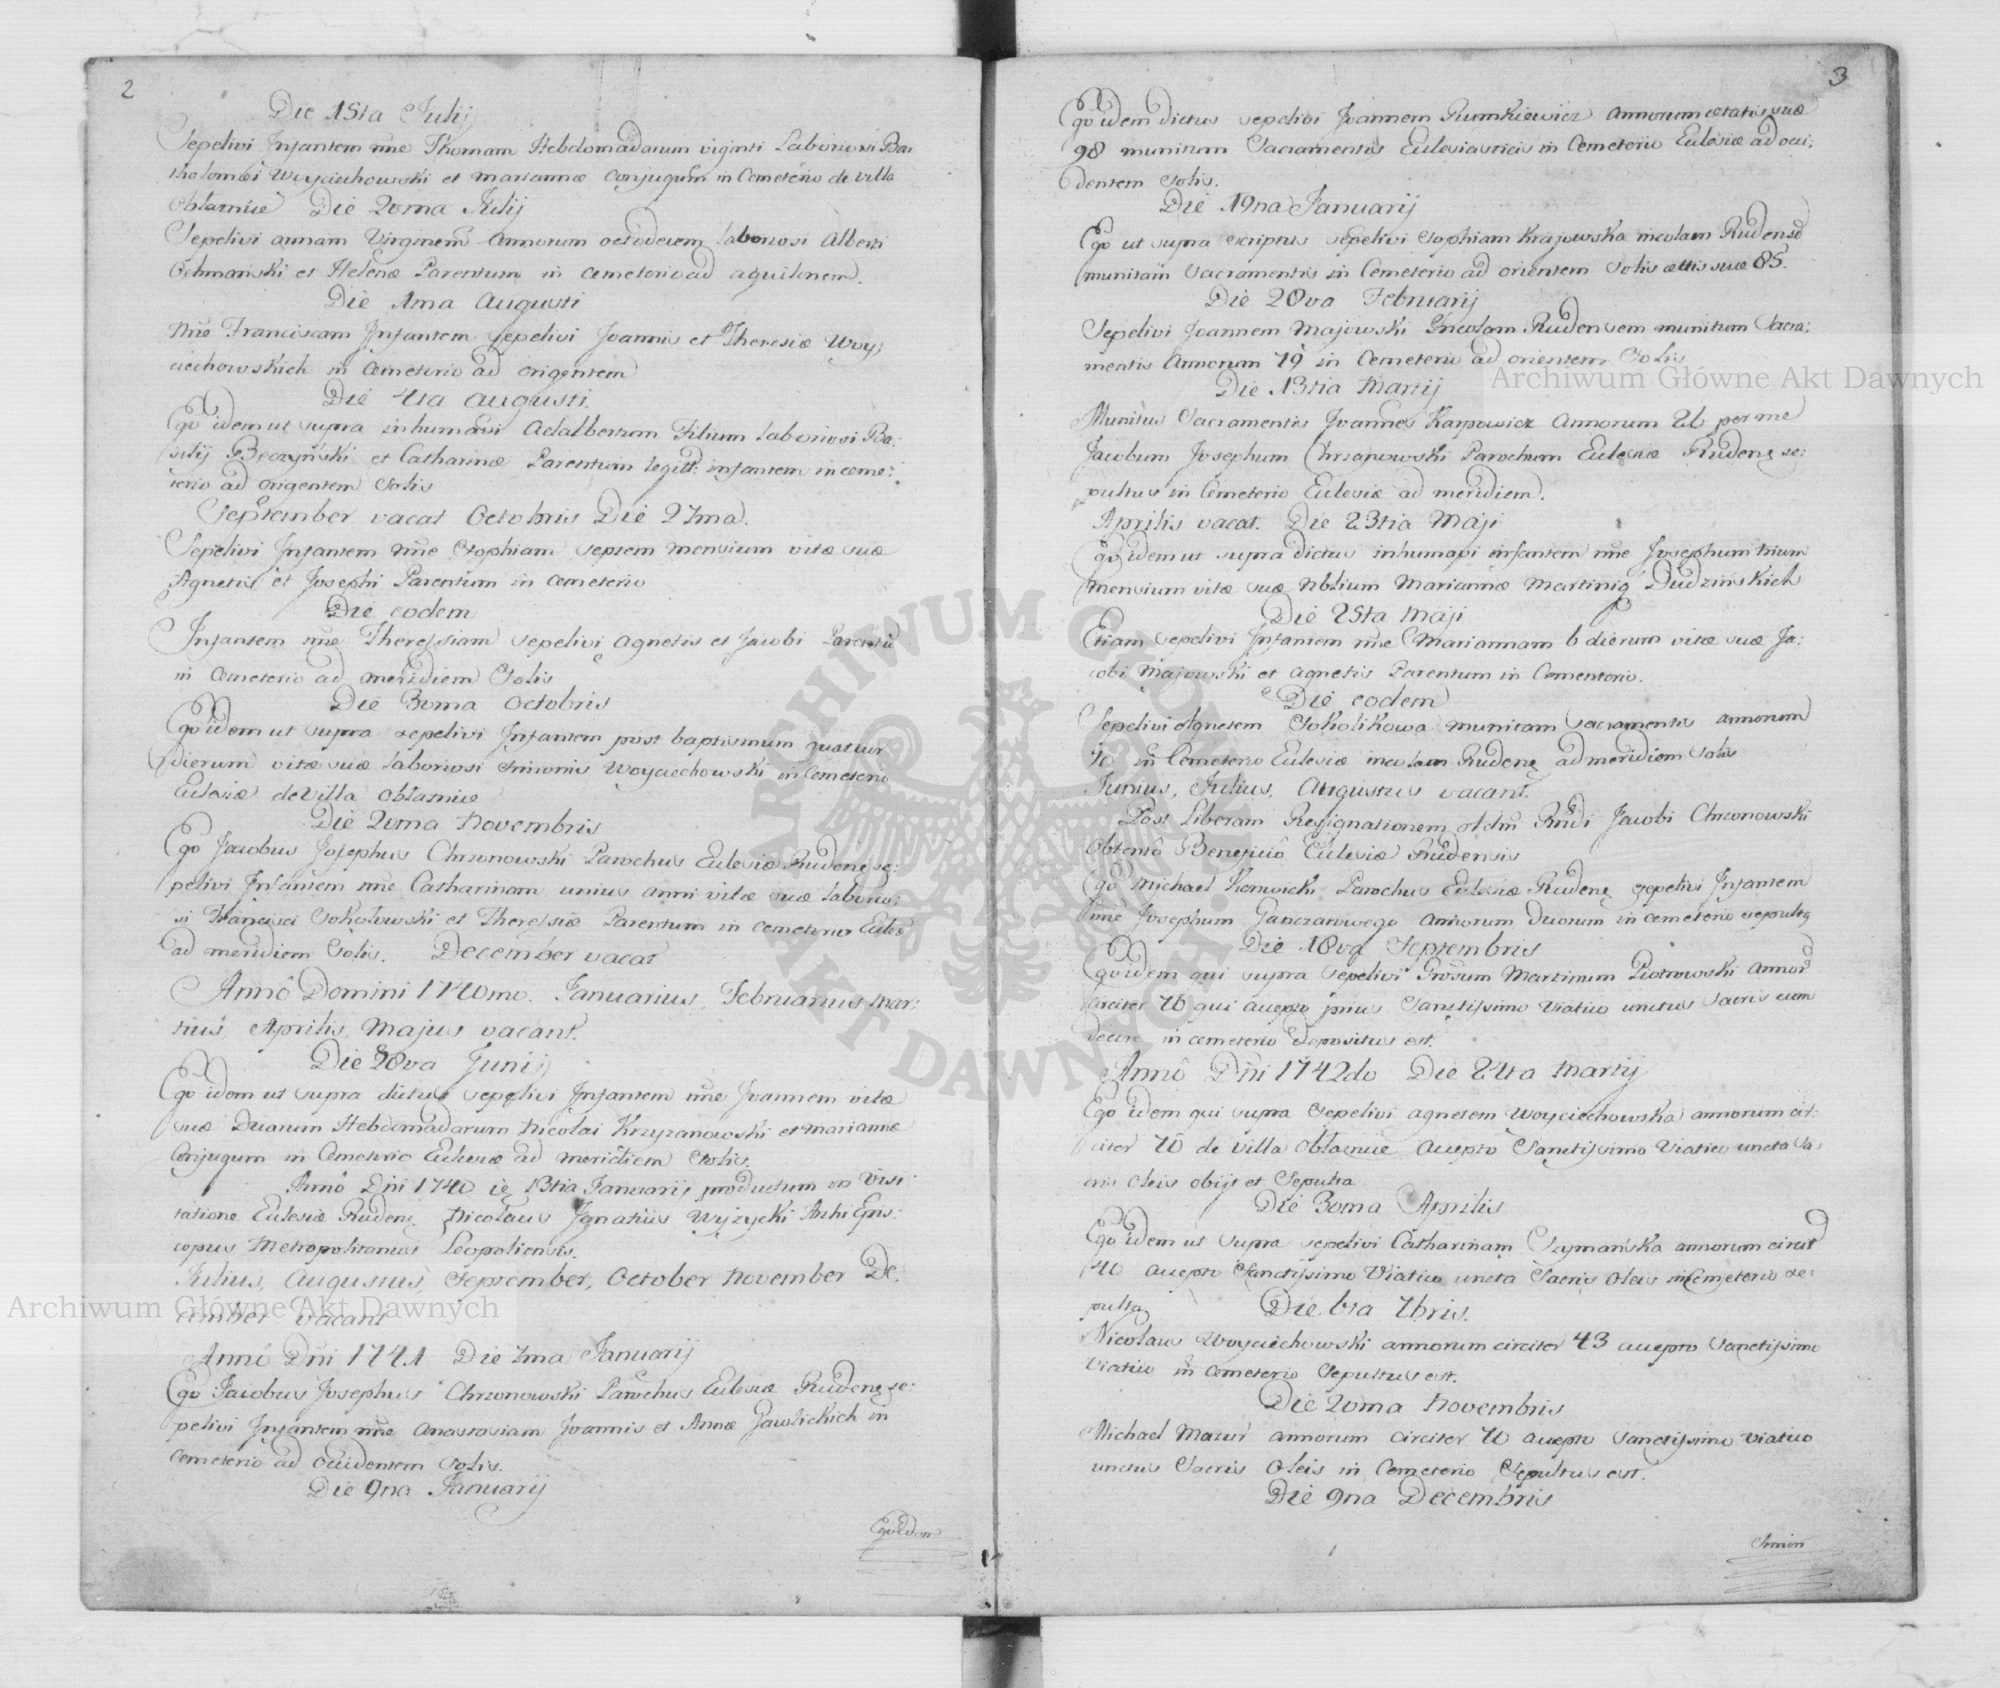 2
Die 15ta Julij
Sepelivi Infantem nne Thomam Hebdomadarum viginti Laboriosi Bar
tholomæi Woyciechowski et Mariannæ conjugum in Cemeterio de villa
Obłaznice Die 20ma Julij
Sepelivi annam Virginem Annorum octodecem laboriosi Alberti
Ochmański et Helenæ Parentum in cemeterio ad aquilonem.
Die 1ma Augusti
nne Franciscam Infantem sepelivi Joannis et Theresiæ Woy:
ciechowskich in Cemeterio ad origentem
Die 4ta augusti.
Ego idem ut supra inhumavi Adalbertum Filium laboriosi Ba:
silij Beczyński et Catharinæ Parentum legitt: infantem in ceme:
terio ad origentem Solis
September vacat Octobris Die 27ma.
Sepelivi Infantem nne Sophiam septem mensium vitæ suæ
Agnetis et Josephi Parentum in cemeterio
Die eodem
Infantem nne Theressiam sepelivi Agnetis et Jacobi Parentu
in Cemeterio ad meridiem Solis
Die 30ma Octobris
Ego idem ut supra sepelivi Infantem post baptismum quatuor
dierum vitæ suæ laboriosi Simonis Woyciechowski in Cemeterio
Eclesiæ de Villa Obłaznice
Die 20ma Novembris
Ego Jacobus Josephus Chrzonowski Parochus Eclesiæ Rudenę se:
pelivi Infantem nne Catharinam unius anni vitæ suæ laborio:
si Francisci Sokołowski et Theressiæ Parentum in cemeterio Ecles
ad meridiem Solis. December vacat
Annô Domini 1740mo. Januarius, Februarius Mar:
tius Aprilis, Majus vacant.
Die 28va Junij
Ego idem ut supra dictus sepelivi Infantem nne Joannem vitæ
suæ Duarum Hebdomadarum Nicolai Krzyzanowski et Mariannæ
Conjugum in Cemeterio Eclesiæ ad meridiem Solis.
Annô Dni 1740 ię 13tia Januarij productum in Visi
tatione Eclesiæ Rudenę Nicolaus Ignatius Wyżycki Archi Epis:
copus Metropolitanus Leopoliensis.
Julius, Augustus, September, October November De:
cember vacant
Annô Dni 1741 Die 7ma Januarij
Ego Jacobus Josephus Chrzonowski Parochus Eclesiæ Rudenę se:
pelivi Infantem nne Anastasiam Joannis et Annæ Gawlickich in
Cemeterio ad Occidentem Solis.
Die 9na Januarij
Ego idem
3
Ego idem dictus sepelivi Joannem Rumkiewicz annorum ætatis suæ
98 munitum Sacramentis Eclesiasticis in Cemeterio Eclesiæ ad occi:
dentem Solis.
Die 19na Januarij
Ego ut supra scriptus sepelivi Sophiam Krajowska incolam Rudense
munitam Sacramentis in Cemeterio ad orientem Solis ættis suæ 85.
Die 28va Februarij
Sepelivi Joannem Majowski Incolam Rudensem munitum Sacra:
mentis Annorum 79 in Cemeterio ad orientem Solis
Die 13tia Martij
Munitus Sacramentis Joannes Karpowicz Annorum 26 per me
Jacobum Josephum Chrzanowski Parochum Eclesiæ Rudenę se:
pultus in Cemeterio Eclesiæ ad meridiem.
Aprilis vacat. Die 23tia Maji
Ego idem ut supra dictus inhumavi infantem nne Josephum trium
mensium vitæ suæ Nbilium Mariannæ Martiniq Dudzińskich
Die 25ta Maji
Etiam sepelivi Infantem nne Mariannam 6 dierum vitæ suæ Ja:
cobi Majowski et Agnetis Parentum in Cementerio.
Die eodem
Sepelivi Agnetem Sokolikowa munitam Sacramentis annorum
70 in Cemeterio Eclesiæ incolam Rudenę ad meridiem Solis
Junius, Julius, Augustus vacant.
Post Liberam Resignationem Adm Rndi Jacobi Chrzonowski
Obtentô Beneficiô Eclesiæ Rudensis
Ego Michael Konwicki Parochus Eclesiæ Rudenę sepelivi Infantem
nne Josephum Ganczarowego Annorum Duorum in cemeterio
Die 18va Septembris
Ego idem qui supra sepelivi Grosum Martinum Piotrowski annor
circiter 76 qui accepto prius Sanctissimo Viatico unctus Sacris cum
decore in cemeterio Depositus est.
Annô Dni 1742do Die 24ta Martij
Ego idem qui supra Sepelivi agnetem Woyciechowska annorum cir:
citer 70 de Villa Obłaznice accepto Sanctissimo Viatico uncta Sa:
cris Oleis obijt et Sepulta
Die 30ma Aprilis
Ego idem ut supra sepelivi Catharinam Szymańska annorum circit
40 accepto Sanctissimo Viatico uncta Sacris Oleis in Cemeterio se:
pulta Die 6ta 7bris.
Nicolaus Woyciechowski annorum circiter 43 accepto Sanctissimo
Viatico in cemeterio Sepultus est.
Die 20ma Novembris
Michael Mazur annorum circiter 70 accepto Sanctissimo viatico
unctus Sacris Oleis in Cemeterio Sepultus est.
Die 9na Decembris
Simon
Archiwum Główne Akt Dawnych
Archiwum Główne Akt Dawnych
ARCHIWUM GŁÓWNE AKT DAWNYCH